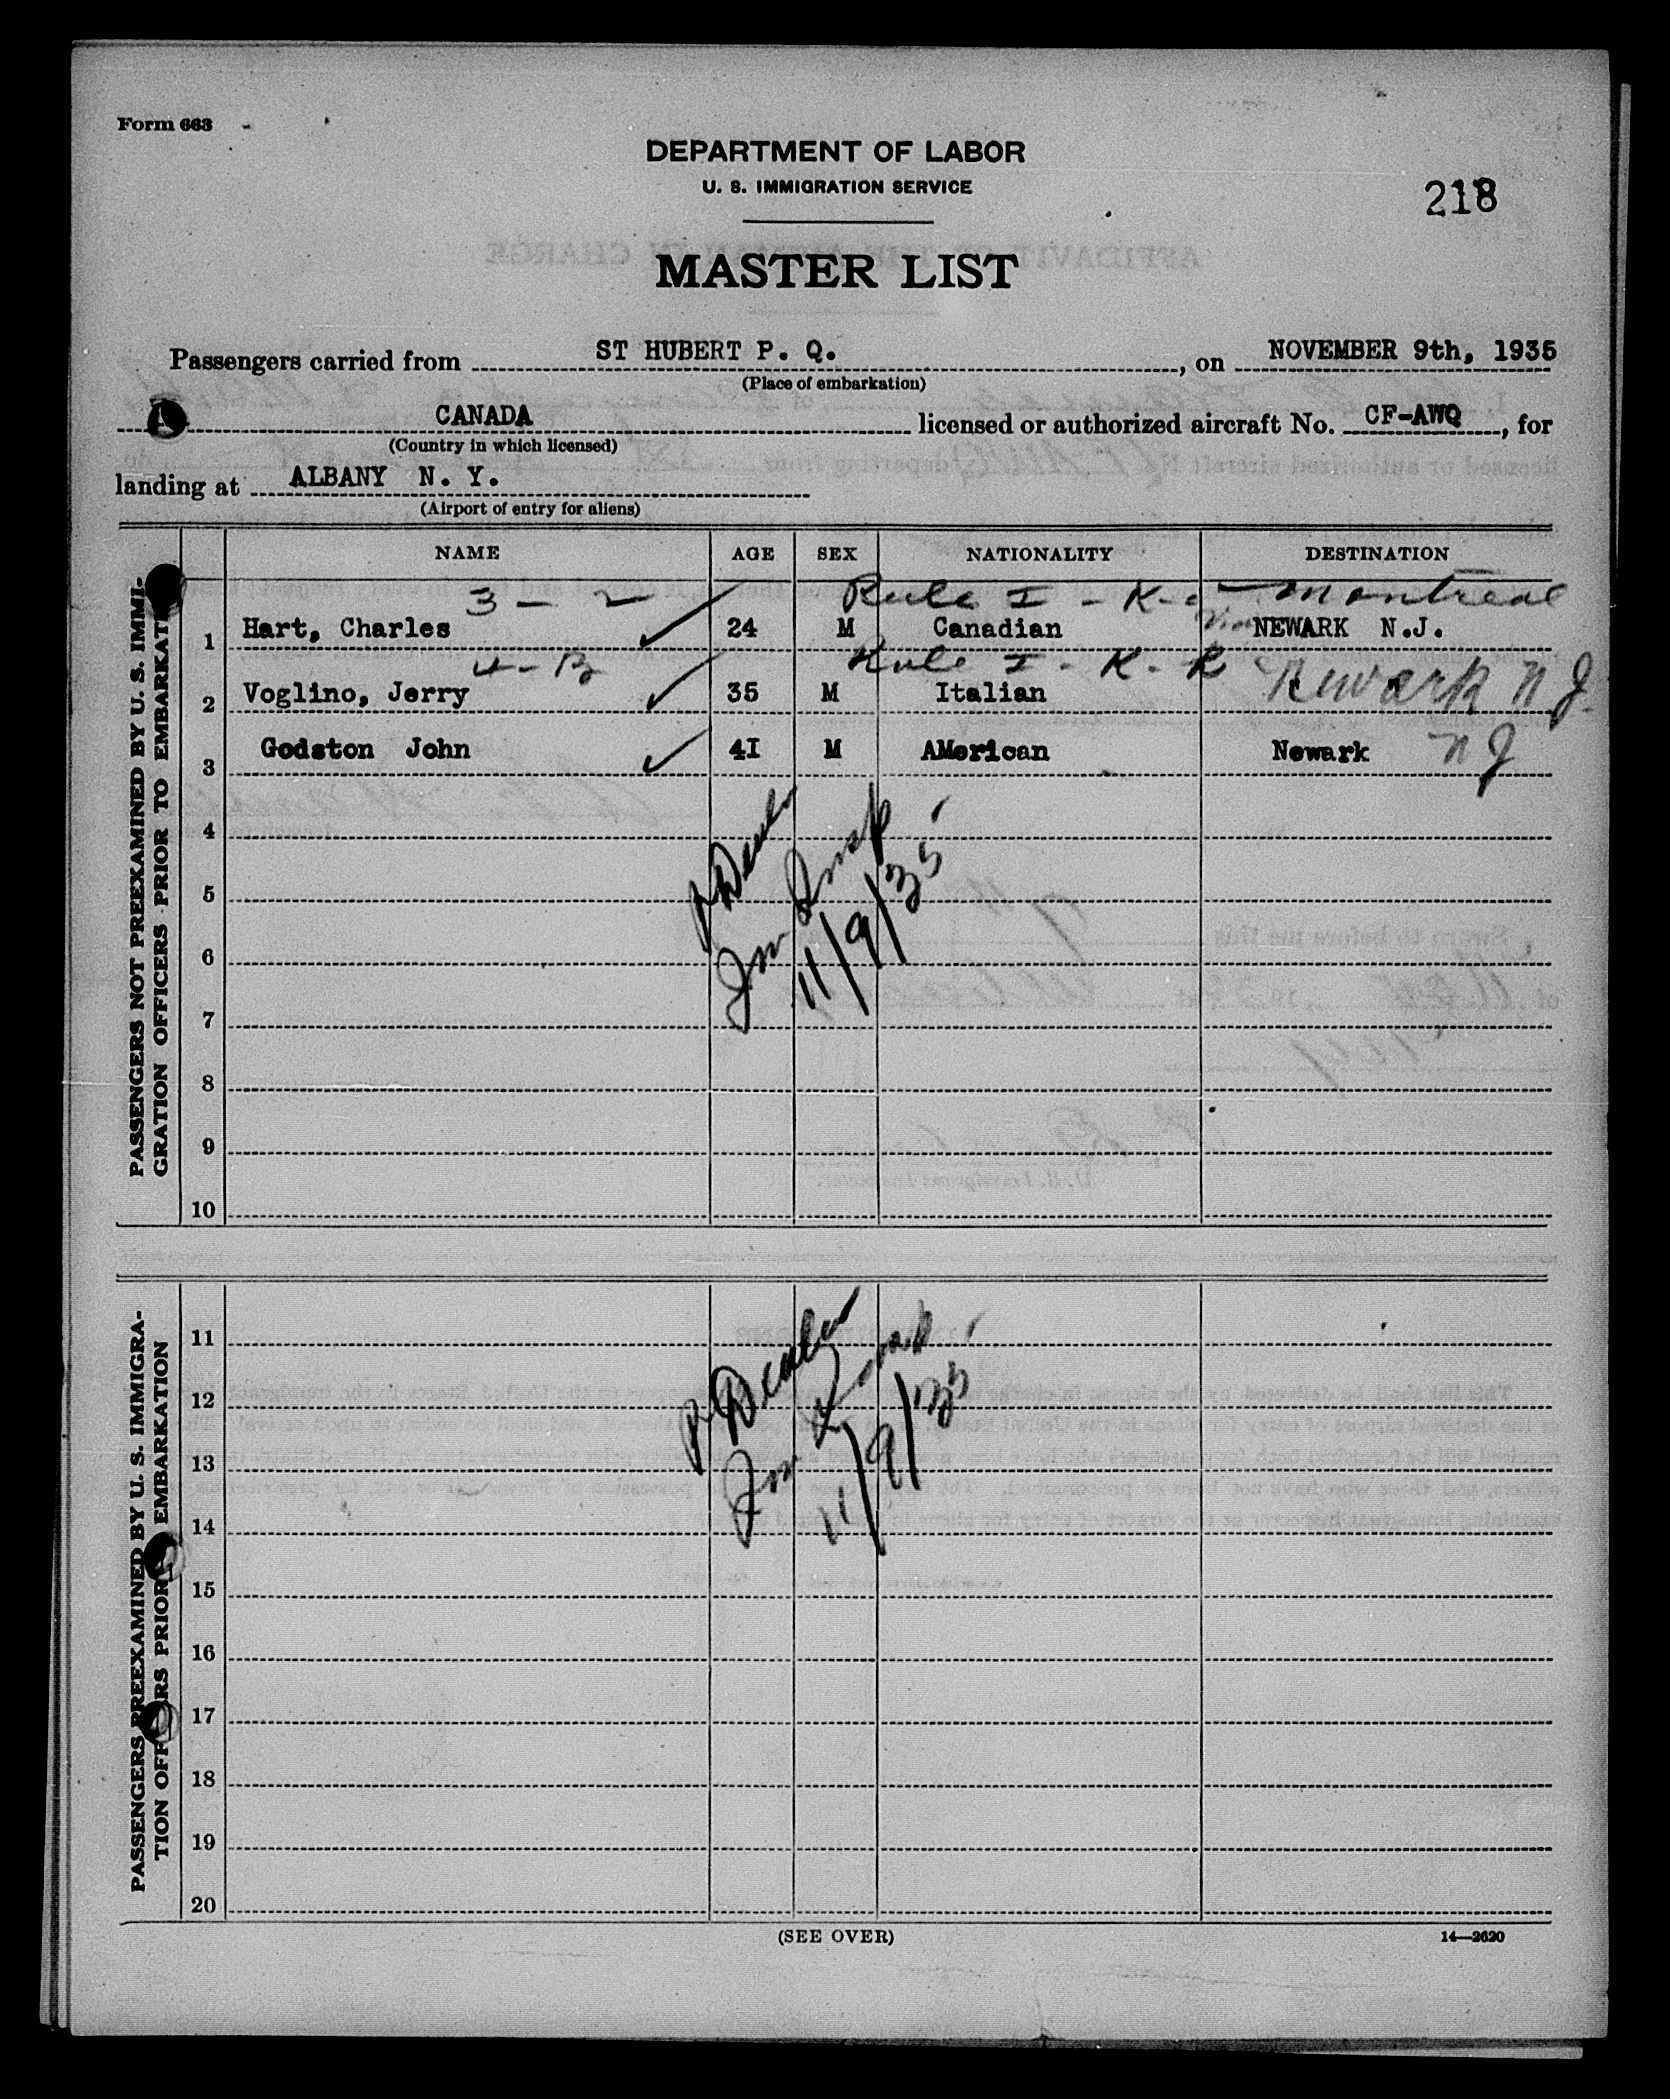 Form 663
DEPARTMENT OF LABOR
U. S. IMMIGRATION SERVICE
218
MASTER LIST
Passengers carried from ST HUBERT P. Q. , on NOVEMBER 9th, 1935
(Place of embarkation)
CANADA licensed or authorized aircraft No. CF-AWQ , for
(Country in which licensed)
landing at ALBANY N. Y.
(Airport of entry for aliens)
NAME AGE SEX NATIONALITY DESTINATION
3 - 2 Rule I - K - Montreal
1 Hart, Charles 24 M Canadian NEWARK N.J.
4 - B Rule I - K - R
2 Voglino, Jerry 35 M Italian " " Newark N J.
3 Godston John 4I M AMerican Newark N J
4
5
6
7
8
9
10
Imm Insp
11/9/35
PASSENGERS NOT PREEXAMINED BY U. S. IMMI-
GRATION OFFICERS PRIOR TO EMBARKATI
11
12
13
14
15
16
17
18
19
20
Imm Insp
11/9/35
PASSENGERS PREEXAMINED BY U. S. IMMIGRA-
TION OFF RS PRIOR EMBARKATION
(SEE OVER)
14—2620